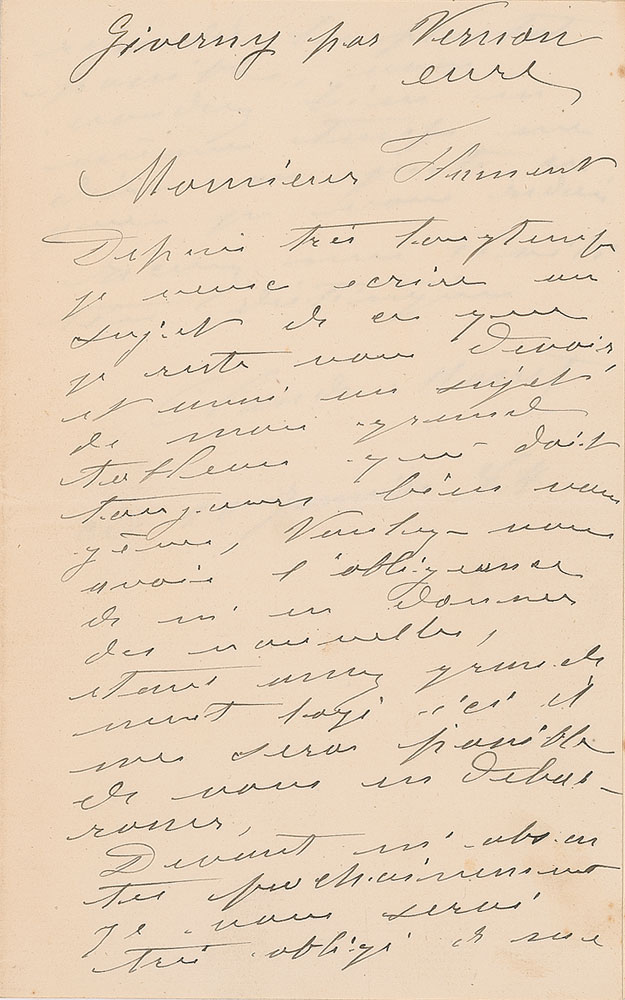 Giverny par Vernon
eure
Monsieur Flament
Depuis très longtemps
je veux ecrire au
sujet de ce que
je reste vous devoir,
et aussi au sujet
de mon grand
tableau qui doit
toujours bien vous
gêner, Voulez-vous
avoir l'obligeance
de m'en donner
des nouvelles,
etant assez grande
ment logé ici il
me sera possible
de vous en debar-
rasser,
Devant m'absen
ter prochainement
je vous serai
très obligé de me